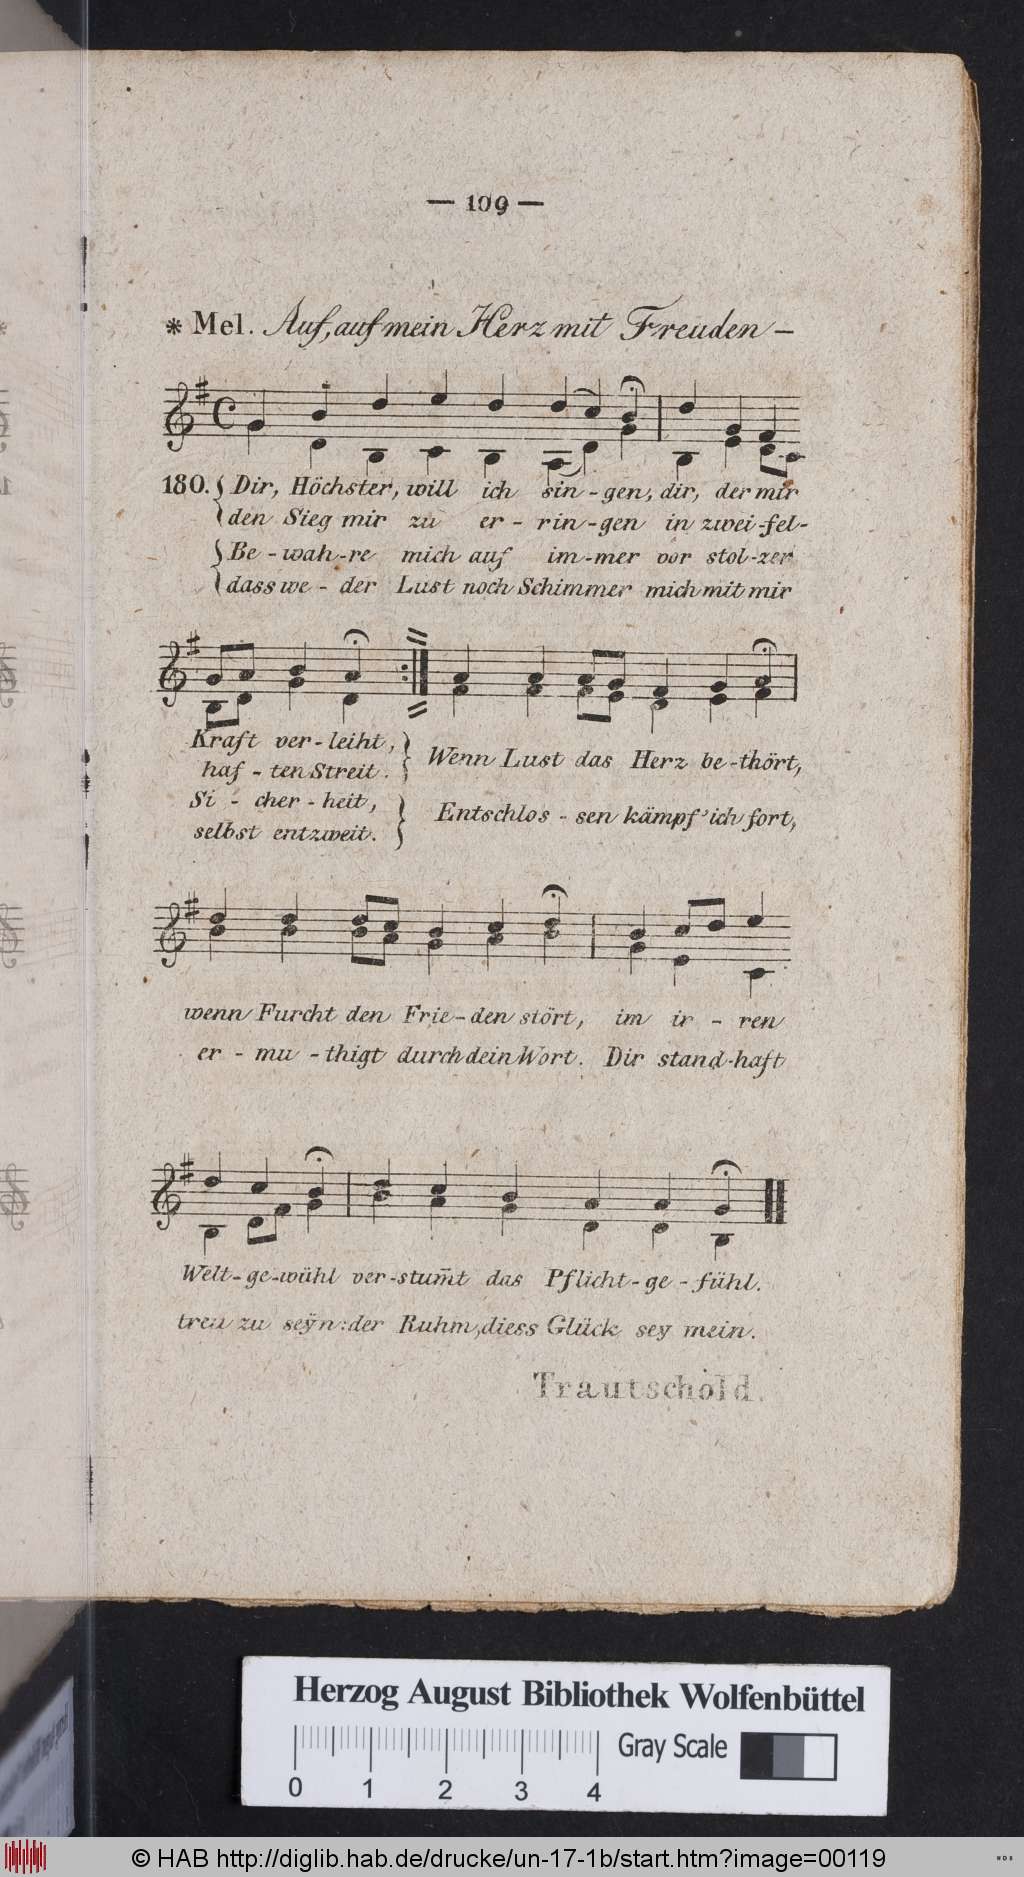 — 109 —
* Mel. Auf, auf mein Herz mit Freuden —
180. { Dir, Höchster, will ich sin - gen, dir, der mir
den Sieg mir zu er - rin - gen in zwei - fel -
{ Be - wah - re mich auf im - mer vor stol - zer
dass we - der Lust noch Schimmer mich mit mir
Kraft ver - leiht, }
haf - ten Streit.
Wenn Lust das Herz be - thört,
Si - cher - heit, }
selbst entzweit.
Entschlos - sen kämpf' ich fort,
wenn Furcht den Frie - den stört, im ir - ren
er - mu - thigt durch dein Wort. Dir stand - haft
Welt - ge - wühl ver - stum̄t das Pflicht - ge - fühl.
treu zu seÿn: der Ruhm, diess Glück sey mein.
Trautschold.
Herzog August Bibliothek Wolfenbüttel
Gray Scale
0 1 2 3 4
© HAB http://diglib.hab.de/drucke/un-17-1b/start.htm?image=00119